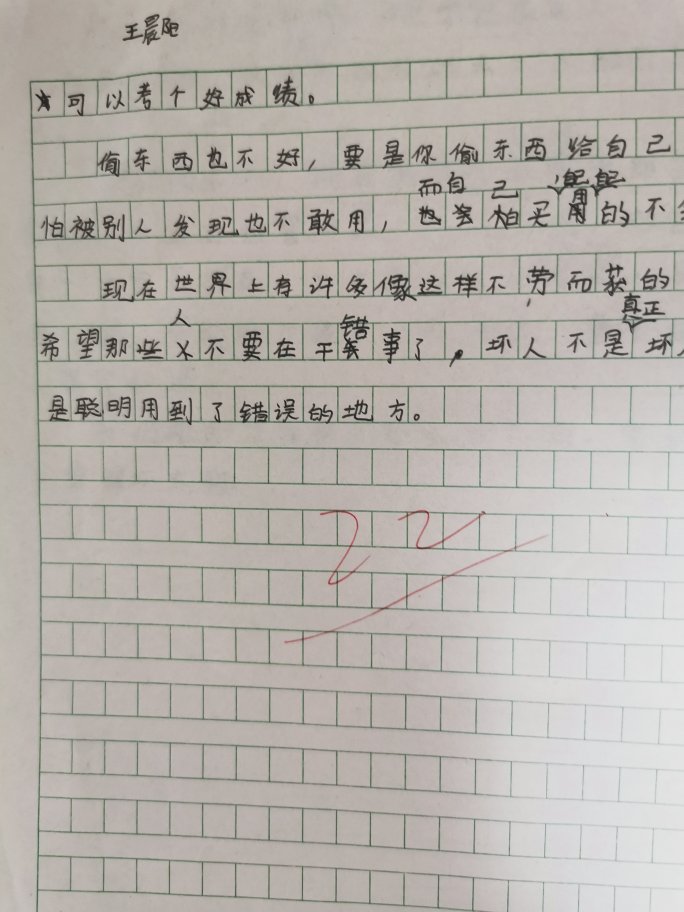 王晨阳
可以考个好成绩。
偷东西也不好，要是你偷东西给自己
而自己
怕被别人发现也不敢用，怕买的不
现在世界上有许多像这样不劳而获的
人 错 真正
希望那些不要在干事了，坏人不是坏
是聪明用到了错误的地方。
22